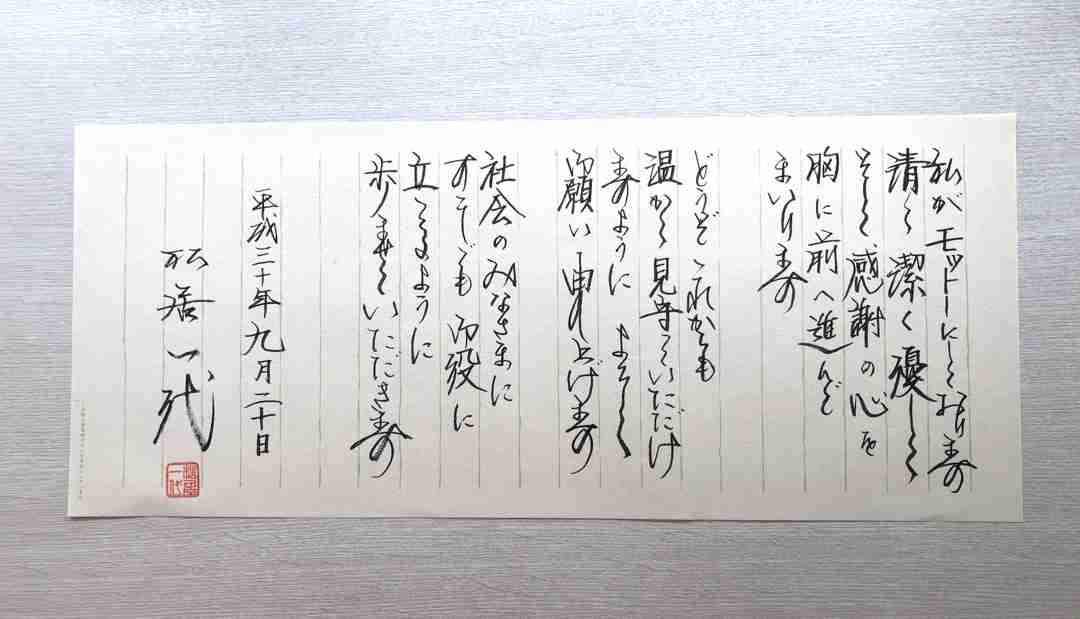 私がモットーにしております
清く 潔く 優しく
そして 感謝の心を
胸に 前へ進んで
まいります
どうぞ これからも
温かく 見守っていただけ
ますように よろしく
御願い 申し上げます
社会のみなさまに
すこしでも 御役に
立てるように
歩ませていただきます
平成三十年九月二十日
松居一代